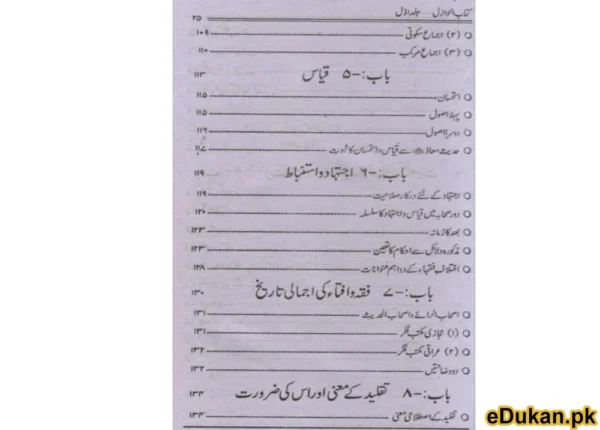 کتاب النوازل جلد اوّل
۲۵
(۲) اجماع سکوتی ۱۰۹
(۳) اجماع مرکب ۱۱۰
باب:-۵ قیاس ۱۱۳
استحسان ۱۱۵
پہلا اصول ۱۱۵
دوسرا اصول ۱۱۶
حدیث معاذ سے قیاس و استحسان کا ثبوت ۱۱۷
باب:-۶ اجتہاد و استنباط ۱۱۹
اجتہاد کے لئے درکار صلاحیت ۱۱۹
دورِ صحابہ میں قیاس و اجتہاد کا سلسلہ ۱۲۰
بعد کا زمانہ ۱۲۳
مذکورہ دلائل سے احکام کا تعین ۱۲۳
اختلافِ فقہاء کے دو اہم عنوانات ۱۲۸
باب:-۷ فقہ و افتاء کی اجمالی تاریخ ۱۳۰
اصحاب الرائے و اصحاب الحدیث ۱۳۱
(۱) حجازی مکتب فکر ۱۳۱
(۲) عراقی مکتب فکر ۱۳۲
دو وضاحتیں ۱۳۲
باب:-۸ تقلید کے معنی اور اس کی ضرورت ۱۳۳
تقلید کے اصطلاحی معنی ۱۳۳
eDukan.pk